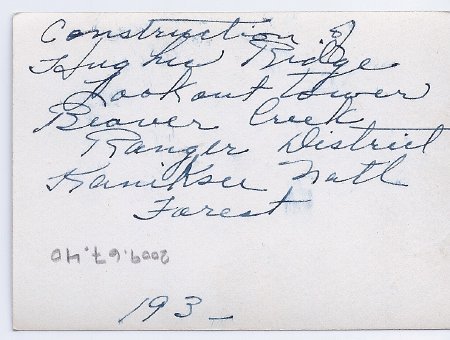 Construction of
Hughes Ridge
Lookout Tower
Beaver Creek
Ranger District
Kaniksu Natl
Forest
2009.67.40
193_